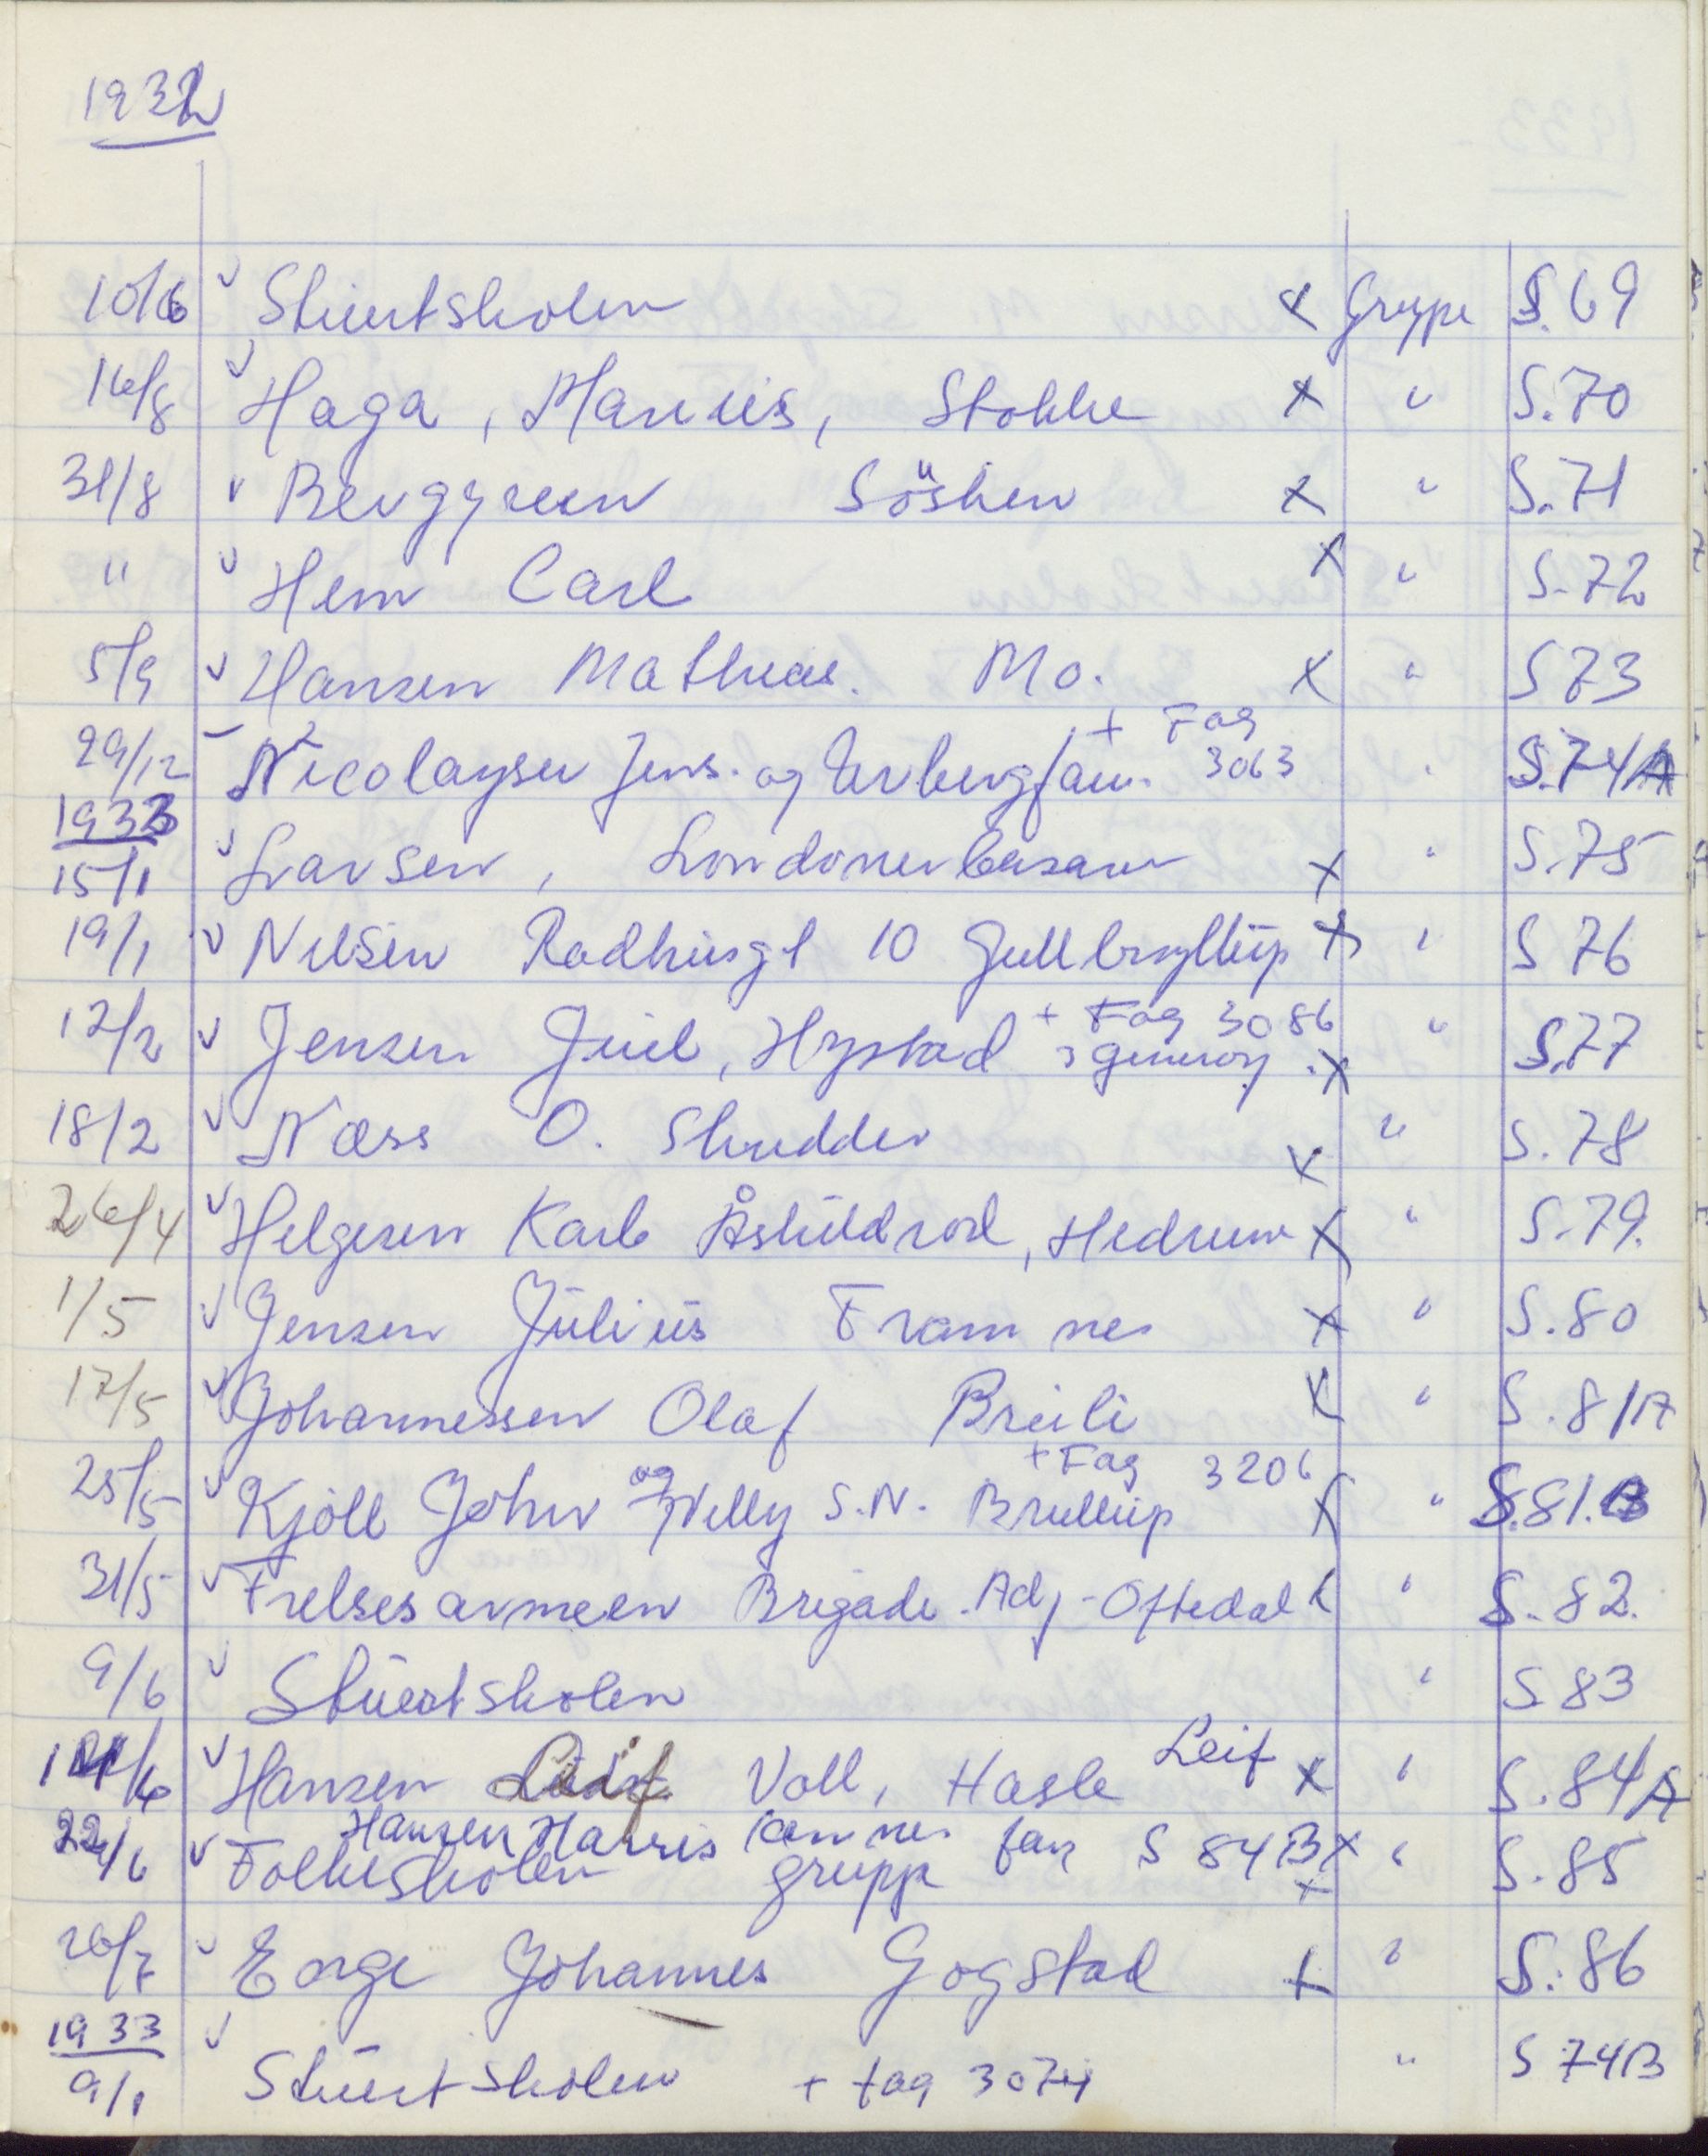 1932
10/6 v Stuertskolen x Gruppe S.69
16/8 v Haga, Marius, Stokke x " S.70
31/8 v Berggreen Søsken x " S.71
" v Hem Carl x " S.72
5/9 v Hansen Mathias. Mo. x " S 73
+ Fag
29/12 Nicolaysen Jens. og fam. 3063 " S.74A
1933
15/1 v Larsen, Londonerbasaren x " S.75
19/1 v Nilsen Radhusgt 10 Gullbryllup x " S 76
+ Fag 3086
12/2 v Jensen Juel, Hystad x " S.77
18/2 v Næss O. x " S.78
26/4 v Helgesen Karl Åskildrød, Hedrum x " S.79.
1/5 v Jensen Julius Framnes x " S.80
17/5 v Johannessen Olaf Breili x " S.81A
+ Fag 3206
25/5 v Kjøll John og Nelly S.N. Bryllup x " S.81.B
31/5 v Frelsesarmeen Brigade. Adj-Oftedal x " S.82.
9/6 v Stuertskolen " S 83
v Hansen Leif Voll, Hasle Leif x " S.84A
Hansen Harris fag S 84B x
22/6 v Folkeskolen gruppe x " S.85
26/7 v Enge Johannes Gogstad x " S.86
1933
9/1 v Stuertskolen + fag 3074 " S 74B